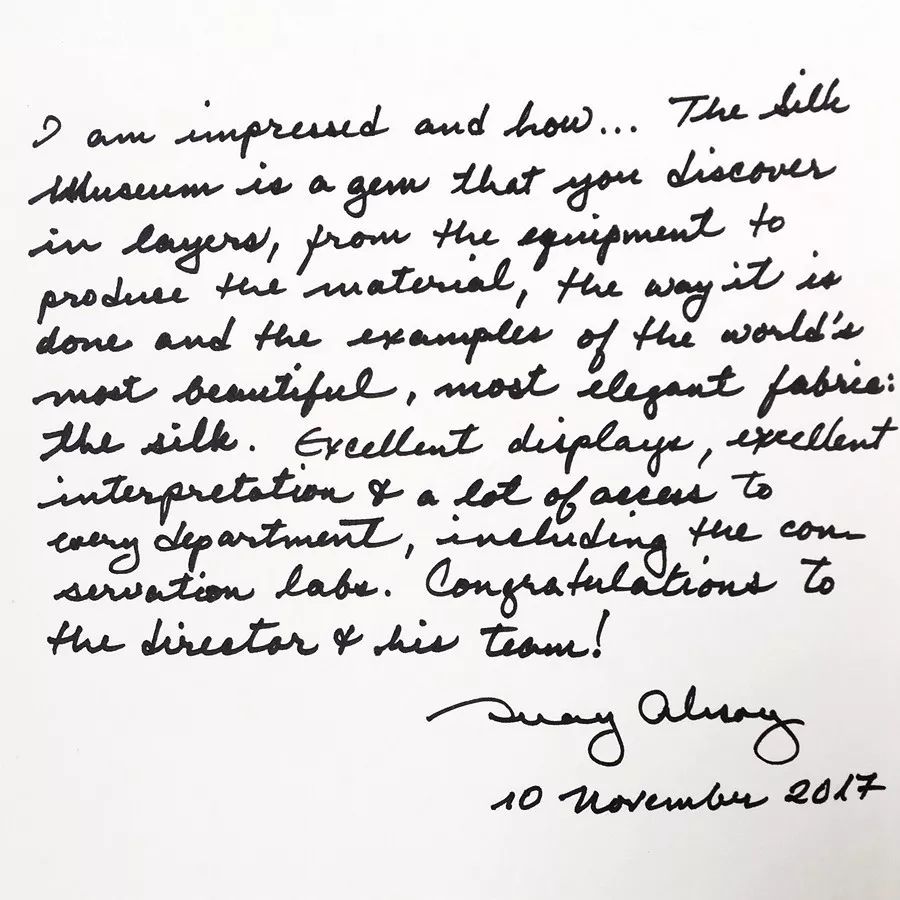 I am impressed and how... The Silk
Museum is a gem that you discover
in layers, from the equipment to
produce the material, the way it is
done and the examples of the world's
most beautiful, most elegant fabric:
the silk. Excellent displays, excellent
interpretation & a lot of access to
every department, including the con-
servation labs. Congratulations to
the director & his team!
Suay Aksoy
10 November 2017